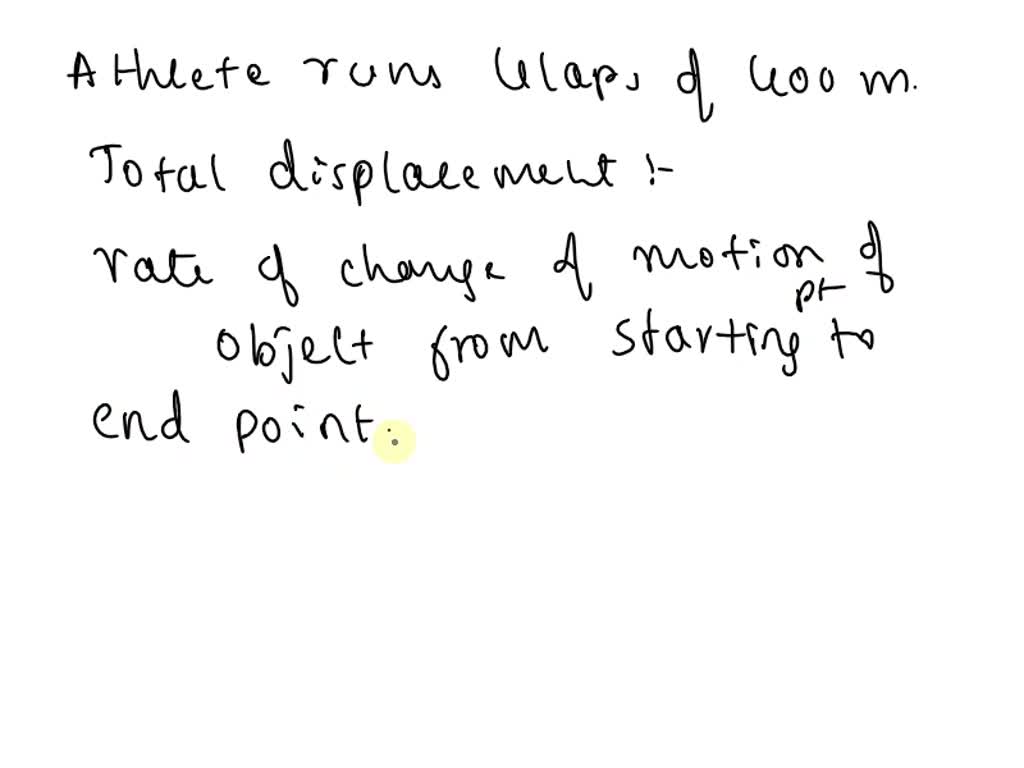 Athlete runs 4 laps of 400 m.
Total displacement :-
rate of change of motion of
object from starting pt to
end point.